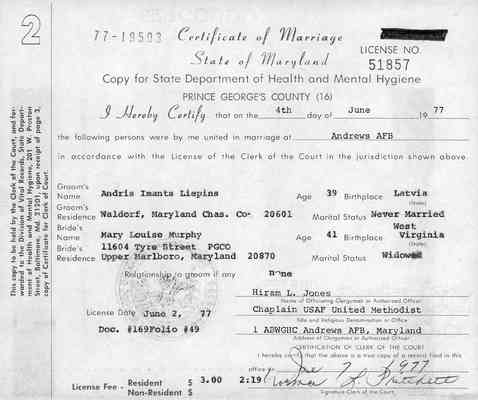 2
77-19503 Certificate of Marriage
State of Maryland
LICENSE NO.
51857
Copy for State Department of Health and Mental Hygiene
PRINCE GEORGE'S COUNTY (16)
I Hereby Certify that on the 4th day of June 19 77
the following persons were by me united in marriage at Andrews AFB
in accordance with the License of the Clerk of the Court in the jurisdiction shown above.
Groom's
Name Andris Imants Liepins Age 39 Birthplace Latvia
(State)
Groom's
Residence Waldorf, Maryland Chas. Co. 20601 Marital Status Never Married
Bride's
Name Mary Louise Murphy Age 41 Birthplace West Virginia
(State)
Bride's
Residence 11604 Tyre Street PGCO
Upper Marlboro, Maryland 20870 Marital Status Widowed
Relationship to groom if any None
Hiram L. Jones
Name of Officiating Clergyman or Authorized Officer
License Date June 2, 77
Chaplain USAF United Methodist
Title and Religious Denomination or Office
Doc. #169Folio #49
1 ADWGHC Andrews AFB, Maryland
Address of Clergyman or Authorized Officer
CERTIFICATION OF CLERK OF THE COURT
I hereby certify that the above is a true copy of a record filed in this
office on June 7, 1977
License Fee - Resident $ 3.00 2:19
Non-Resident $
Norman L. Pritchett
Signature Clerk of the Court,
This copy to be held by the Clerk of the Court, and forwarded to the Division of Vital Records, State Department of Health and Mental Hygiene, 201 W. Preston Street, Baltimore, Md. 21201 upon receipt of page 3, copy of Certificate for Clerk of Court.